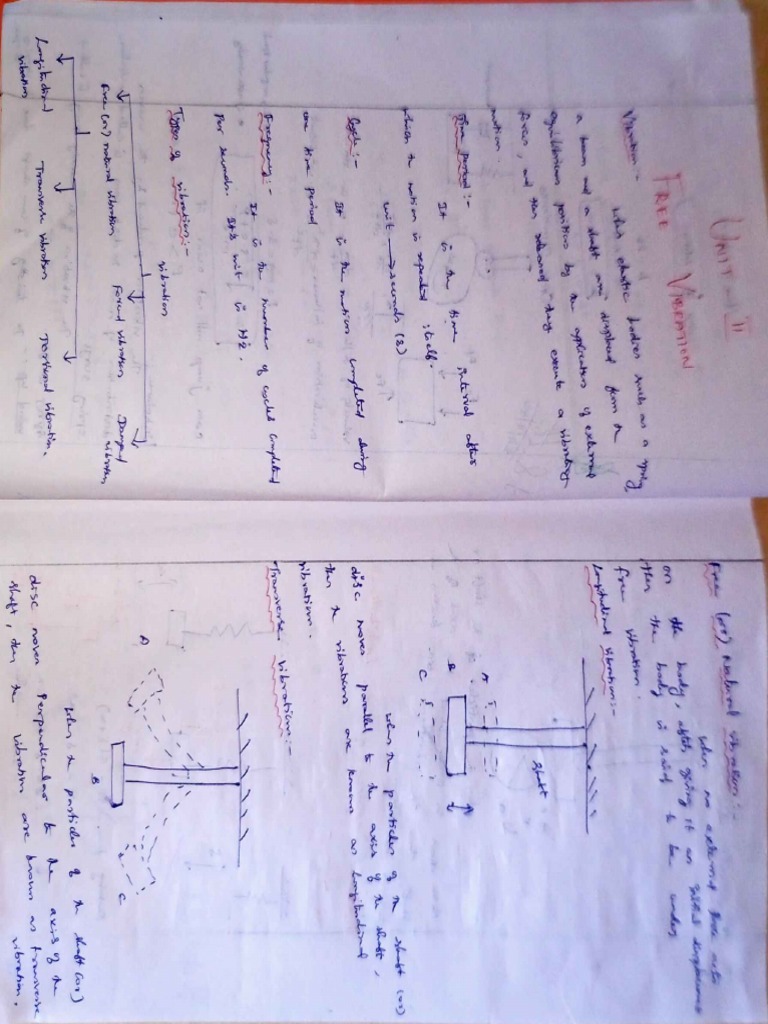 UNIT II
FREE VIBRATION
Vibration :-
When elastic bodies such as a spring
a beam and a shaft are displaced from the
equilibrium position by the application of external
forces, and then released they execute a vibrating
motion.
Time period :-
It is the time interval after
which the motion is repeated itself.
unit → seconds (s)
Cycle :-
It is the motion completed during
one time period
Frequency :-
It is the number of cycled completed
per seconds. Its unit is Hz.
Types of vibration :-
vibration
Free (or) natural vibration Forced vibration Damped vibration
Longitudinal vibration Transverse vibration Torsional vibration.
Free (or) Natural vibration :-
When no external force acts
on the body, after giving it an initial displacement
then the body is said to be under
free vibration.
Longitudinal vibration :-
shaft
A
B
C
When the particles of the shaft (or)
disc moves parallel to the axis of the shaft,
then the vibrations are known as longitudinal
vibrations.
Transverse vibration :-
A
B
C
When the particles of the shaft (or)
disc moves Perpendicular to the axis of the
shaft, then the vibration are known as transverse
vibration.